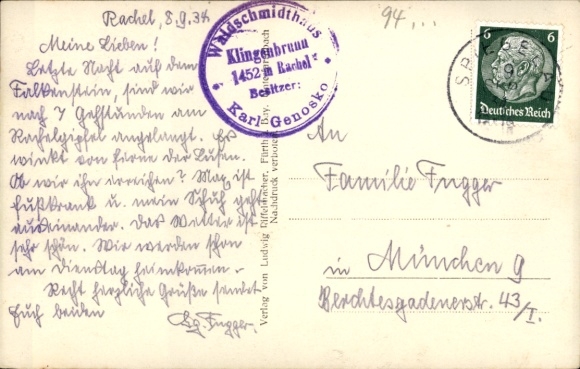 Rachel, 8.9.34
Meine Lieben!
Letzte Nacht auf dem
Falkenstein, sind wir
nach 7 Gehstunden am
Rachelgipfel angelangt. Es
winkt von ferne der Lusen.
Ob wir ihn erreichen? Max ist
fußkrank u. mein Schuh geht
auseinander. Das Wetter ist
sehr schön. Wir werden schon
am Dienstag heimkommen.
Recht herzliche Grüße sendet
Euch beiden
Fugger.
Waldschmidthaus
Klingenbrunn
1452 m Rachel
Besitzer:
Karl Genosko
Verlag von Ludwig Riffelmacher, Fürth i. Bay.
Nachdruck verboten
94...
6 6
Deutsches Reich
An
Familie Fugger
in München 9
Berchtesgadenerstr. 43/I.